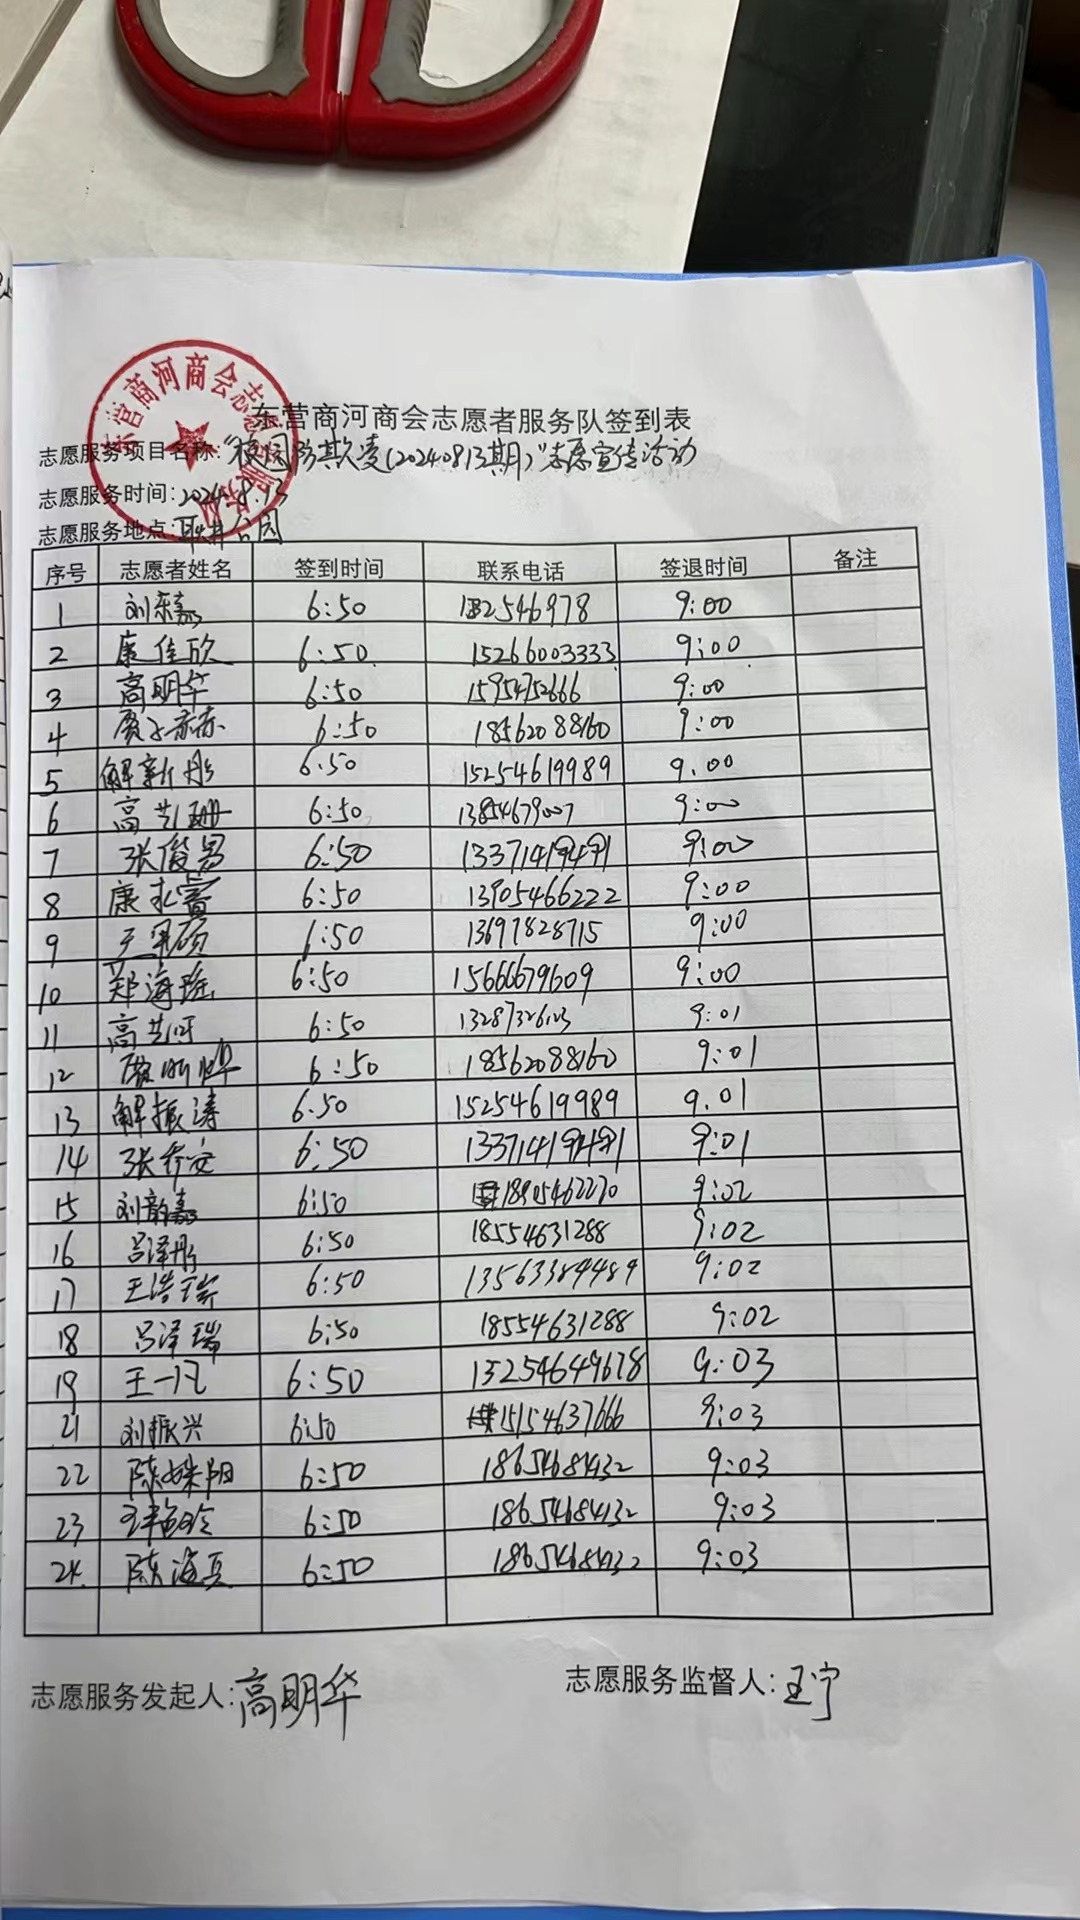 东营商河商会志愿者服务队
东营商河商会志愿者服务队签到表
志愿服务项目名称:“校园防欺凌(20240813期)”志愿宣传活动
志愿服务时间:2024.8.13
志愿服务地点:耿井公园
序号 志愿者姓名 签到时间 联系电话 签退时间 备注
1 刘东嘉 6:50 9:00
2 康佳欣 6:50 15266003333 9:00
3 高明华 6:50 15954752666 9:00
4 6:50 18562088160 9:00
5 解新彤 6:50 15254619989 9.00
6 高艺珊 6:50 13854679007 9:00
7 张俊易 6:50 13371419491 9:00
8 康 6:50 13905466222 9:00
9 王 6:50 13697828715 9:00
10 郑海瑶 6:50 15666679609 9:00
11 高艺 6:50 13287326123 9:01
12 6:50 18562088160 9:01
13 解振涛 6.50 15254619989 9.01
14 张乔安 6:50 13371419491 9:01
15 刘韵嘉 6:50 18905462270 9:02
16 吕泽彤 6:50 18554631288 9:02
17 王浩瑞 6:50 13563384489 9:02
18 吕泽瑞 6:50 18554631288 9:02
19 王一凡 6:50 13254649678 9:03
21 刘振兴 6:50 15154637666 9:03
22 陈姝阳 6:50 18654684132 9:03
23 6:50 18654684132 9:03
24. 陈海兵 6:50 18654684132 9:03
志愿服务发起人:高明华
志愿服务监督人:王宁